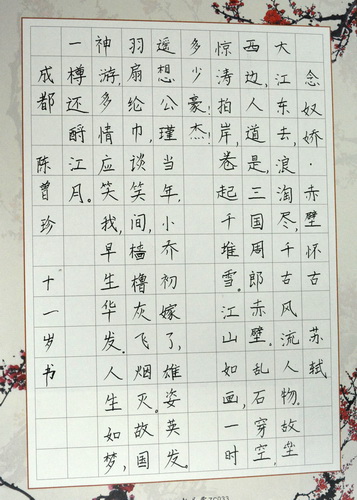 念奴娇·赤壁怀古 苏轼
大江东去,浪淘尽,千古风流人物。故垒
西边,人道是,三国周郎赤壁。乱石穿空,
惊涛拍岸,卷起千堆雪。江山如画,一时
多少豪杰!
遥想公瑾当年,小乔初嫁了,雄姿英发。
羽扇纶巾,谈笑间,樯橹灰飞烟灭。故国
神游,多情应笑我,早生华发。人生如梦,
一樽还酹江月。
成都 陈曾珍 十一岁书
ZC033